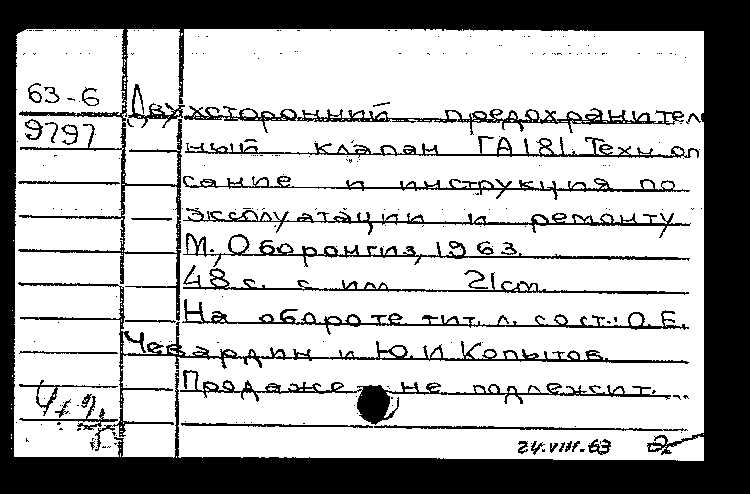 63-6 Двухсторонний предохранитель
9797 ный клапан ГА181. Техн. оп
сание и инструкция по
эксплуатации и ремонту
М., Оборонгиз, 1963.
48 с. с илл 21 см.
На обороте тит. л. сост.: О.Е.
Чевардин и Ю.И Копытов.
Продаже не подлежит.
24.VIII.63